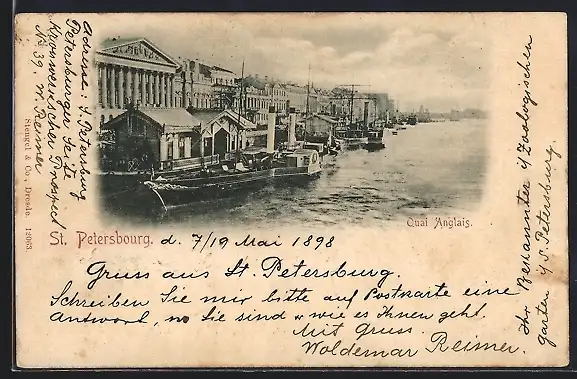 Quai Anglais.
St. Petersbourg. d. 7/19 Mai 1898
Gruss aus St. Petersburg.
Schreiben Sie mir bitte auf Postkarte eine
Antwort, wo Sie sind u wie es Ihnen geht.
Mit Gruss.
Woldemar Reimer.
Ihr Bekannter i/ Zoologischen
Garten i/ S. Petersburg.
Adresse: S. Petersburg
Petersburger Seite
Kronwerkscher Prospect
No 39. W. Reimer
Stengel & Co., Dresde. 12063.